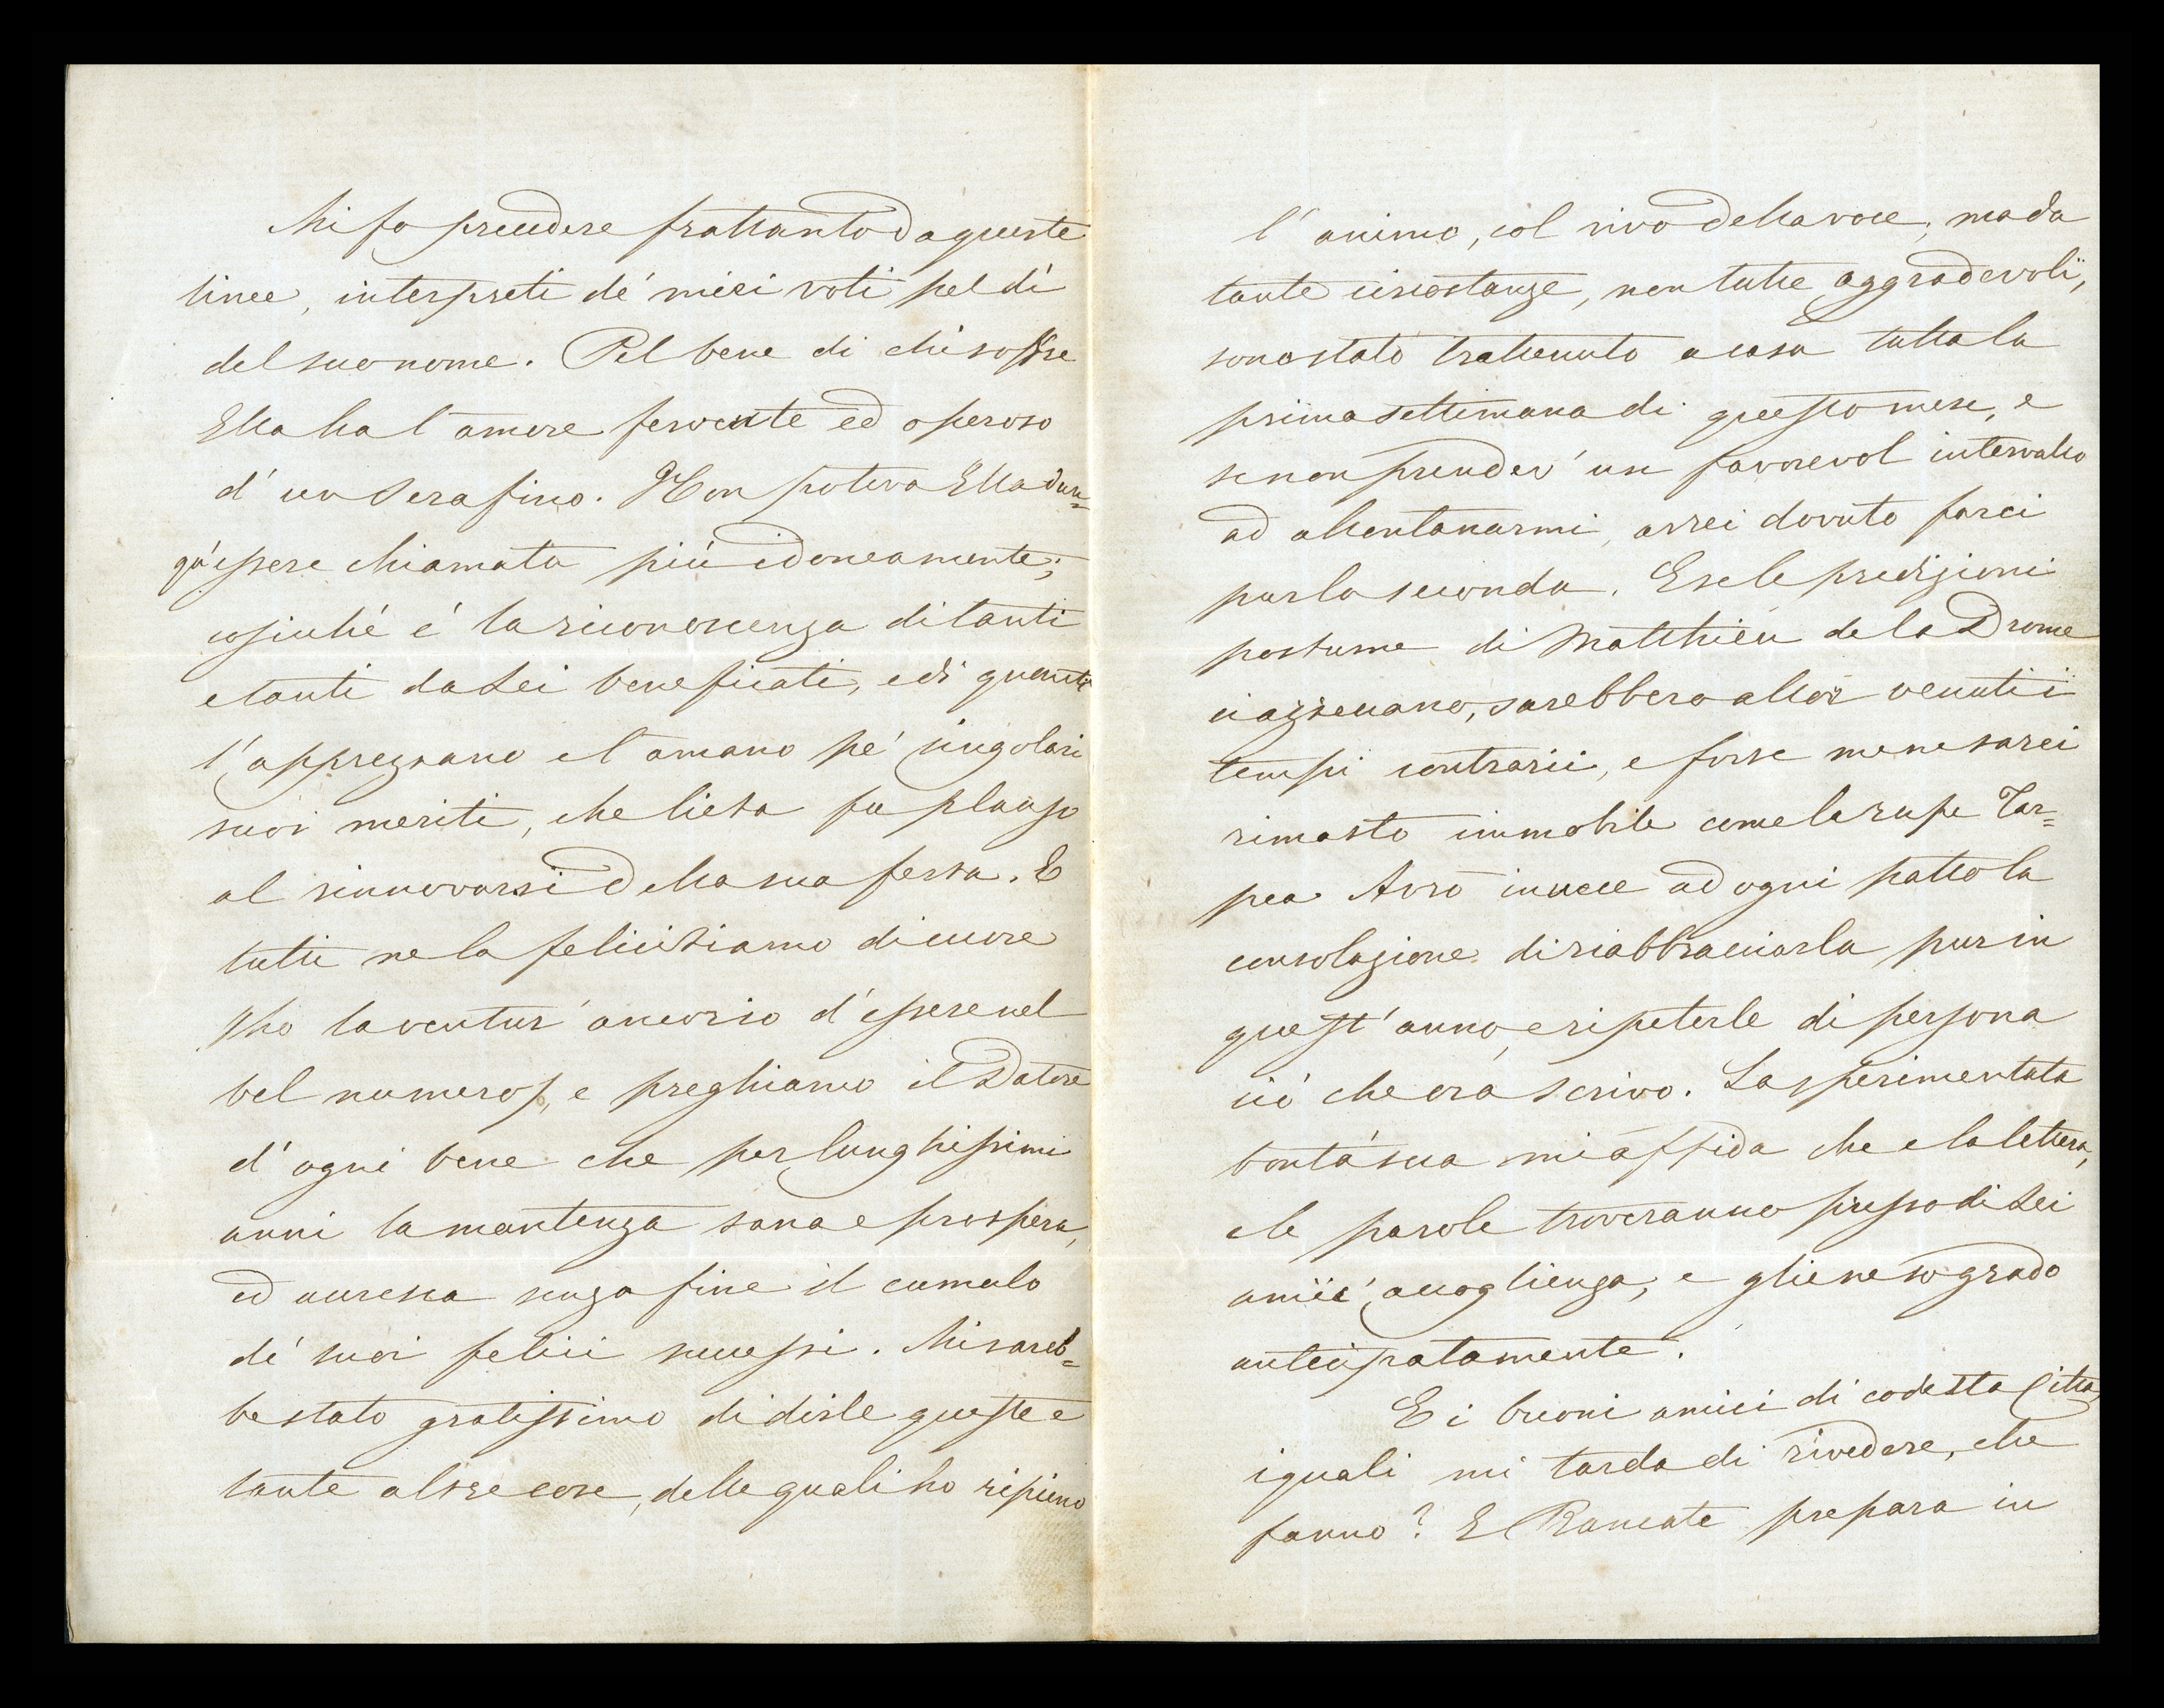 Mi fo precedere frattanto da queste
linee, interpreti de' miei voti pel dì
del suo nome. Pel bene di chi soffre
Ella ha l'amore fervente ed operoso
d'un Serafino. Non poteva Ella dun=
qu'essere chiamata più idoneamente;
cosicché è la riconoscenza di tanti
e tanti da Lei beneficati, e di quanti
l'apprezzano e l'amano pe' singolari
suoi meriti, che lieta fa plauso
al rinnovarsi della sua festa. E
tutti ne la felicitiamo di cuore
(ho la ventur' anch'io d'essere nel
bel numero), e preghiamo il Datore
d'ogni bene che per lunghissimi
anni la mantenga sana e prospera,
ed accresca senza fine il cumulo
de' suoi felici successi. Mi sareb=
be stato gratissimo di dirle queste e
tante altre cose, delle quali ho ripieno
l'animo, col vivo della voce; ma da
tante circostanze, non tutte aggradevoli,
sono stato trattenuto a casa tutta la
prima settimana di questo mese, e
se non prendev' un favorevol intervallo
ad allontanarmi, avrei dovuto farci
pur la seconda. E se le predizioni
postume di Matthieu de la Drome
ci azzeccano, sarebbero allor venuti i
tempi contrarii, e forse me ne sarei
rimasto immobile come la rupe Tar=
pea. Avrò invece ad ogni patto la
consolazione di riabbracciarla pur in
quest'anno, e ripeterle di persona
ciò che ora scrivo. La sperimentata
bontà sua mi affida che e la lettera,
e le parole troveranno presso di Lei
amic' accoglienza, e gliene so grado
anticipatamente.
E i buoni amici di codesta Città
i quali mi tarda di rivedere, che
fanno? E Rancate prepara in